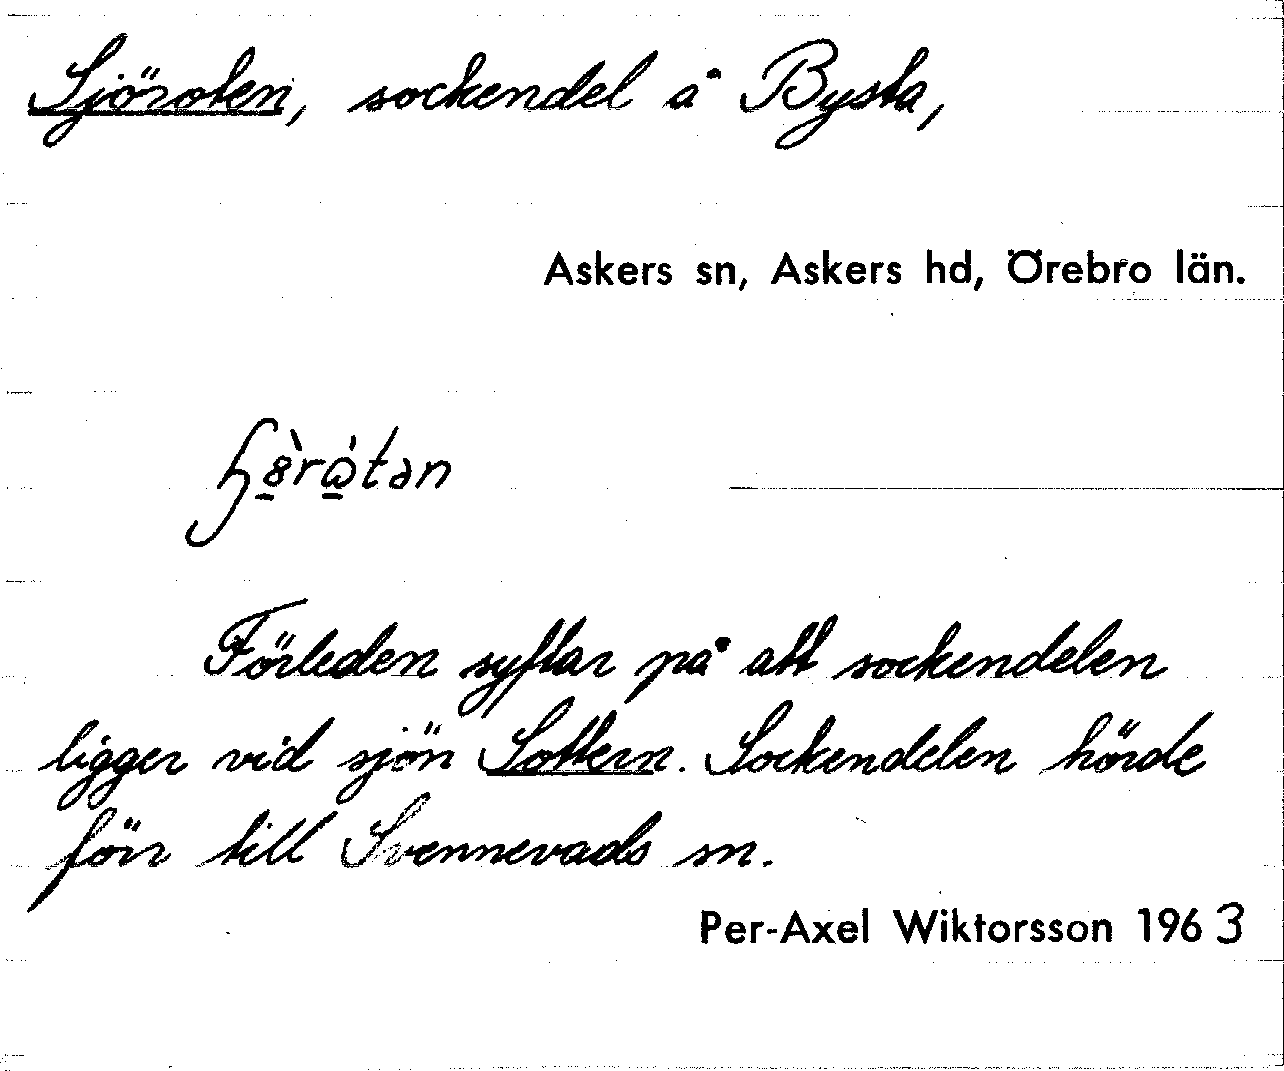 Sjöroten, sockendel å Bysta,
Askers sn, Askers hd, Örebro län.
Förleden syftar på att sockendelen
ligger vid sjön Sottern. Sockendelen hörde
förr till Svennevads sn.
Per-Axel Wiktorsson 1963